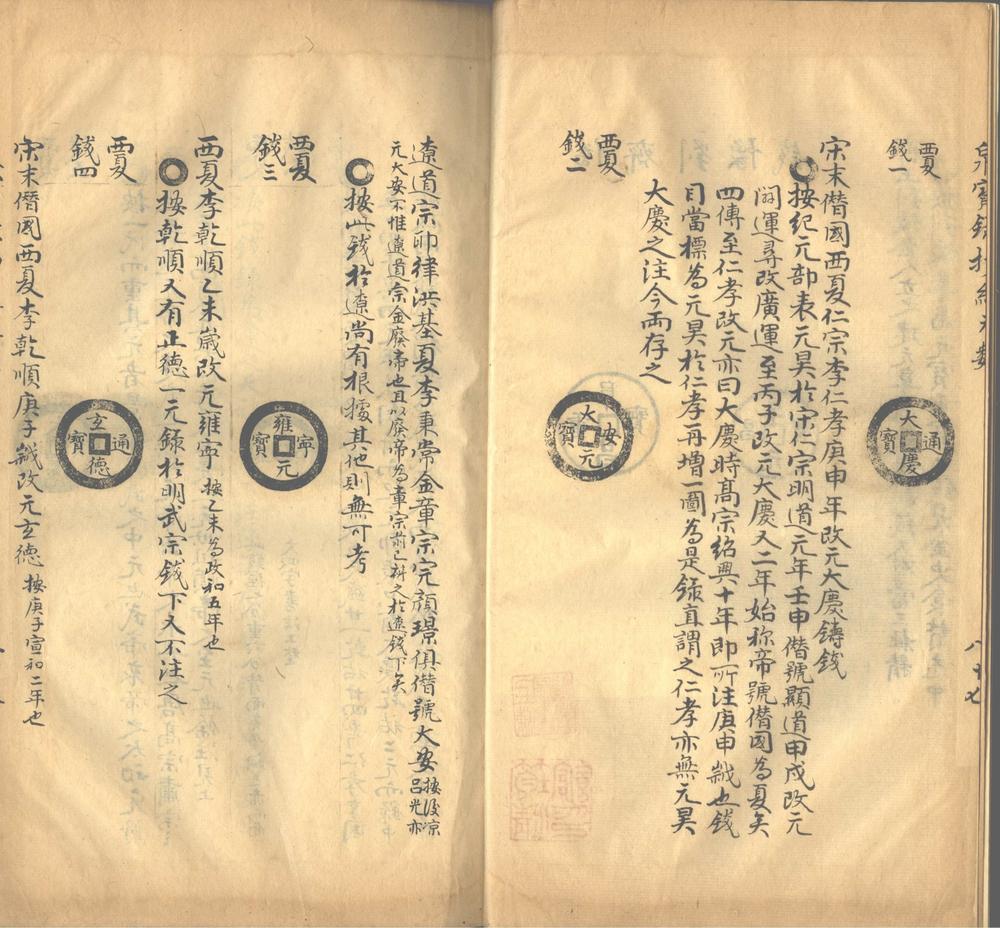 西夏
錢一
大慶通寶
宋末僭國西夏仁宗李仁孝庚申年改元大慶鑄錢
按紀元部表元昊於宋仁宗明道元年壬申僭號顯道甲戌改元
開運尋改廣運至丙子改元大慶又二年始稱帝號僭國為夏矣
四傳至仁孝改元亦曰大慶時高宗紹興十年即所注庚申歲也錢
目當標為元昊於仁孝再增一圖為是錄直謂之仁孝亦無元昊
大慶之注今兩存之
西夏
錢二
大安元寶
遼道宗耶律洪基夏李秉常金章宗完顏璟俱僭號大安按後涼
呂光亦
元大安不惟遼道宗金廢帝也且以廢帝為章宗前已辨之於遼錢下矣
按此錢於遼尚有根據其他則無可考
西夏
錢三
雍寧元寶
西夏李乾順乙未歲改元雍寧按乙未為政和五年也
按乾順又有正德一元錄於明武宗錢下又不注之
西夏
錢四
玄德通寶
宋末僭國西夏李乾順庚子歲改元玄德按庚子宣和二年也